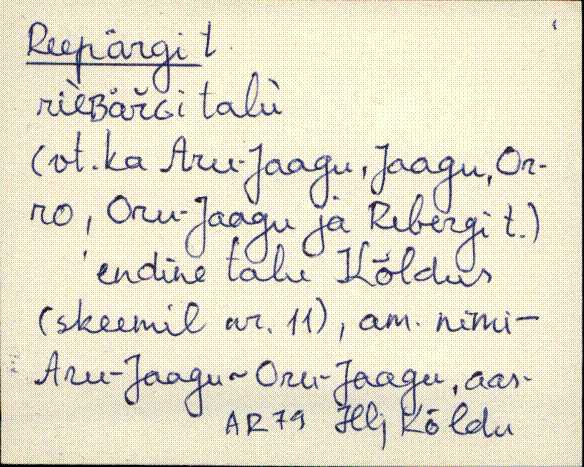 Reepärgi t.
rièʙäřɢi talù
(vt. ka Aru-Jaagu, Jaagu, Or-
ro, Oru-Jaagu ja Rebergi t.)
endine talu Kõldus
(skeemil nr. 11), am. nimi–
Aru-Jaagu ~ Oru-Jaagu, aas-
AR 79 Hlj Kõldu